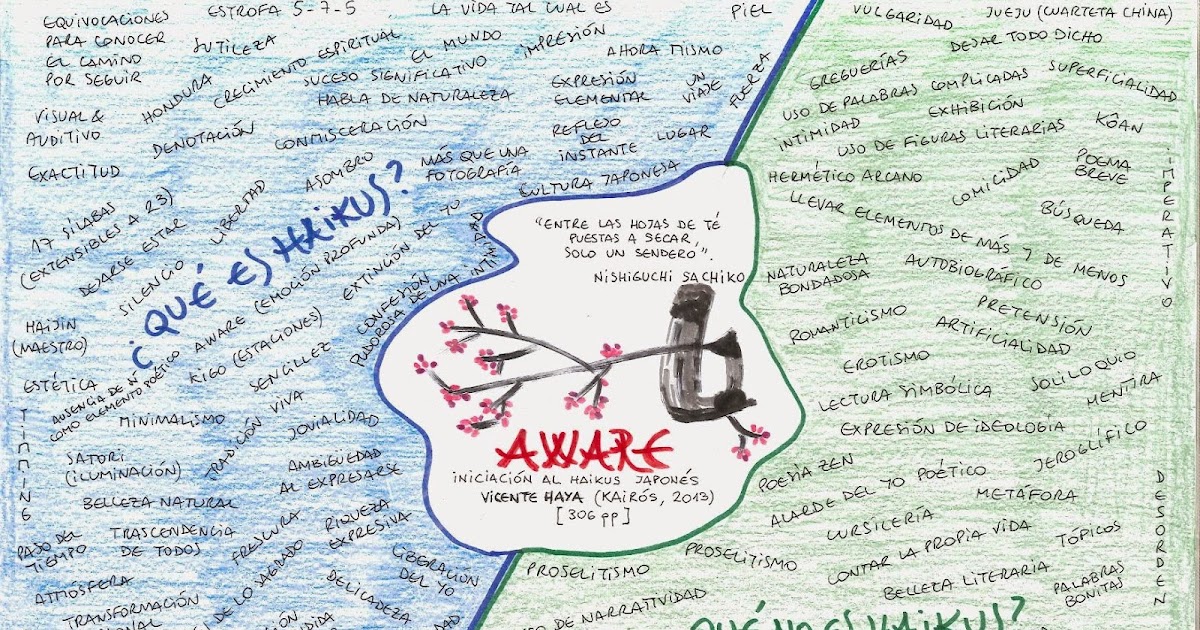 EQUIVOCACIONES
PARA CONOCER
EL CAMINO
POR SEGUIR
ESTROFA 5-7-5
LA VIDA TAL CUAL ES
PIEL
SUTILEZA
HONDURA
CRECIMIENTO ESPIRITUAL
EL MUNDO
IMPRESIÓN
AHORA MISMO
SUCESO SIGNIFICATIVO
HABLA DE NATURALEZA
EXPRESIÓN
ELEMENTAL
UN
VIAJE
FUERZA
VISUAL &
AUDITIVO
DENOTACIÓN
CONMISCERACIÓN
REFLEJO
DEL
INSTANTE
LUGAR
EXACTITUD
ASOMBRO
MÁS QUE UNA
FOTOGRAFÍA
CULTURA JAPONESA
17 SÍLABAS
(EXTENSIBLES A 23)
DEJARSE ESTAR
LIBERTAD
SILENCIO
¿QUÉ ES HAIKUS?
AWARE (EMOCIÓN PROFUNDA)
EXTINCIÓN DEL YO
CONFESIÓN
PUDOROSA DE UNA INTIMIDAD
HAIJIN
(MAESTRO)
KIGO (ESTACIONES)
SENCILLEZ
ESTÉTICA
AUSENCIA DE Nº
COMO ELEMENTO POÉTICO
MINIMALISMO
TRADICIÓN VIVA
JOVIALIDAD
TIMMING
SATORI
(ILUMINACIÓN)
AMBIGÜEDAD
AL EXPRESARSE
BELLEZA NATURAL
PASO DEL
TIEMPO
TRASCENDENCIA
DE TODOS
FRESCURA
RIQUEZA
EXPRESIVA
ATMÓSFERA
DE LO SAGRADO
LIBERACIÓN
DEL YO
DELICADEZA
TRANSFORMACIÓN
"ENTRE LAS HOJAS DE TÉ
PUESTAS A SECAR,
SOLO UN SENDERO".
NISHIGUCHI SACHIKO
AWARE
INICIACIÓN AL HAIKUS JAPONÉS
VICENTE HAYA (KAIRÓS, 2013)
[306 pp]
VULGARIDAD
JUEJU (CUARTETA CHINA)
DEJAR TODO DICHO
GREGUERÍAS
USO DE PALABRAS COMPLICADAS
SUPERFICIALIDAD
INTIMIDAD
EXHIBICIÓN
USO DE FIGURAS LITERARIAS
KÔAN
HERMÉTICO ARCANO
COMICIDAD
POEMA
BREVE
IMPERATIVO
LLEVAR ELEMENTOS DE MÁS Y DE MENOS
BÚSQUEDA
NATURALEZA
BONDADOSA
AUTOBIOGRÁFICO
PRETENSIÓN
ROMANTICISMO
ARTIFICIALIDAD
EROTISMO
SOLILOQUIO
LECTURA SIMBÓLICA
MENTIRA
EXPRESIÓN DE IDEOLOGIA
POESÍA ZEN
JEROGLÍFICO
ALARDE DEL YO POÉTICO
METÁFORA
DESORDEN
CURSILERÍA
PROSELITISMO
CONTAR LA PROPIA VIDA
TÓPICOS
PROSELITISMO
BELLEZA LITERARIA
PALABRAS
BONITAS
DE NARRATIVIDAD